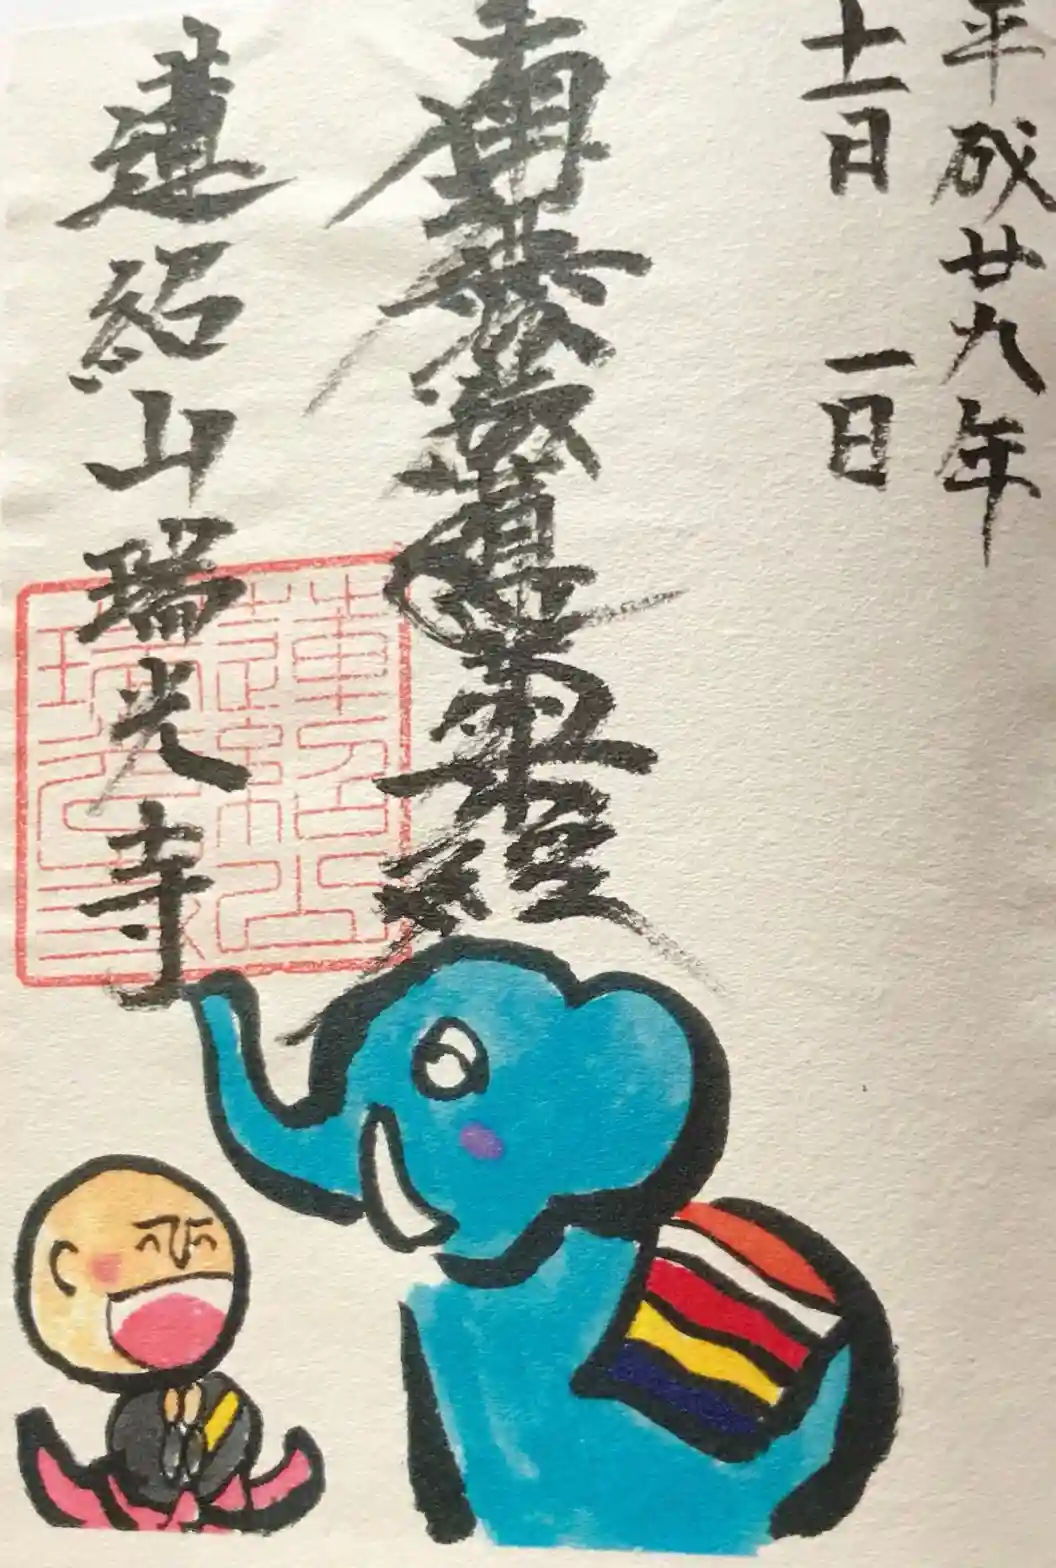 平成廿九年
十一月一日
南無妙法蓮華経
蓮紹山瑞光寺